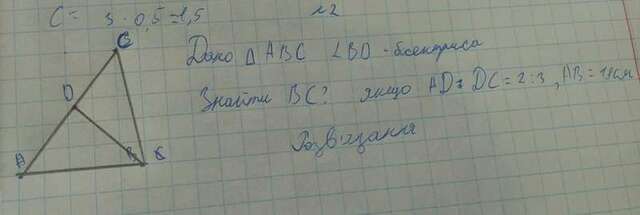 C = 3 · 0,5 = 1,5
№2
Дано △ ABC ∠BD - бісектриса
Знайти BC? якщо AD : DC = 2 : 3,
Розв'язання
C
D
A
B